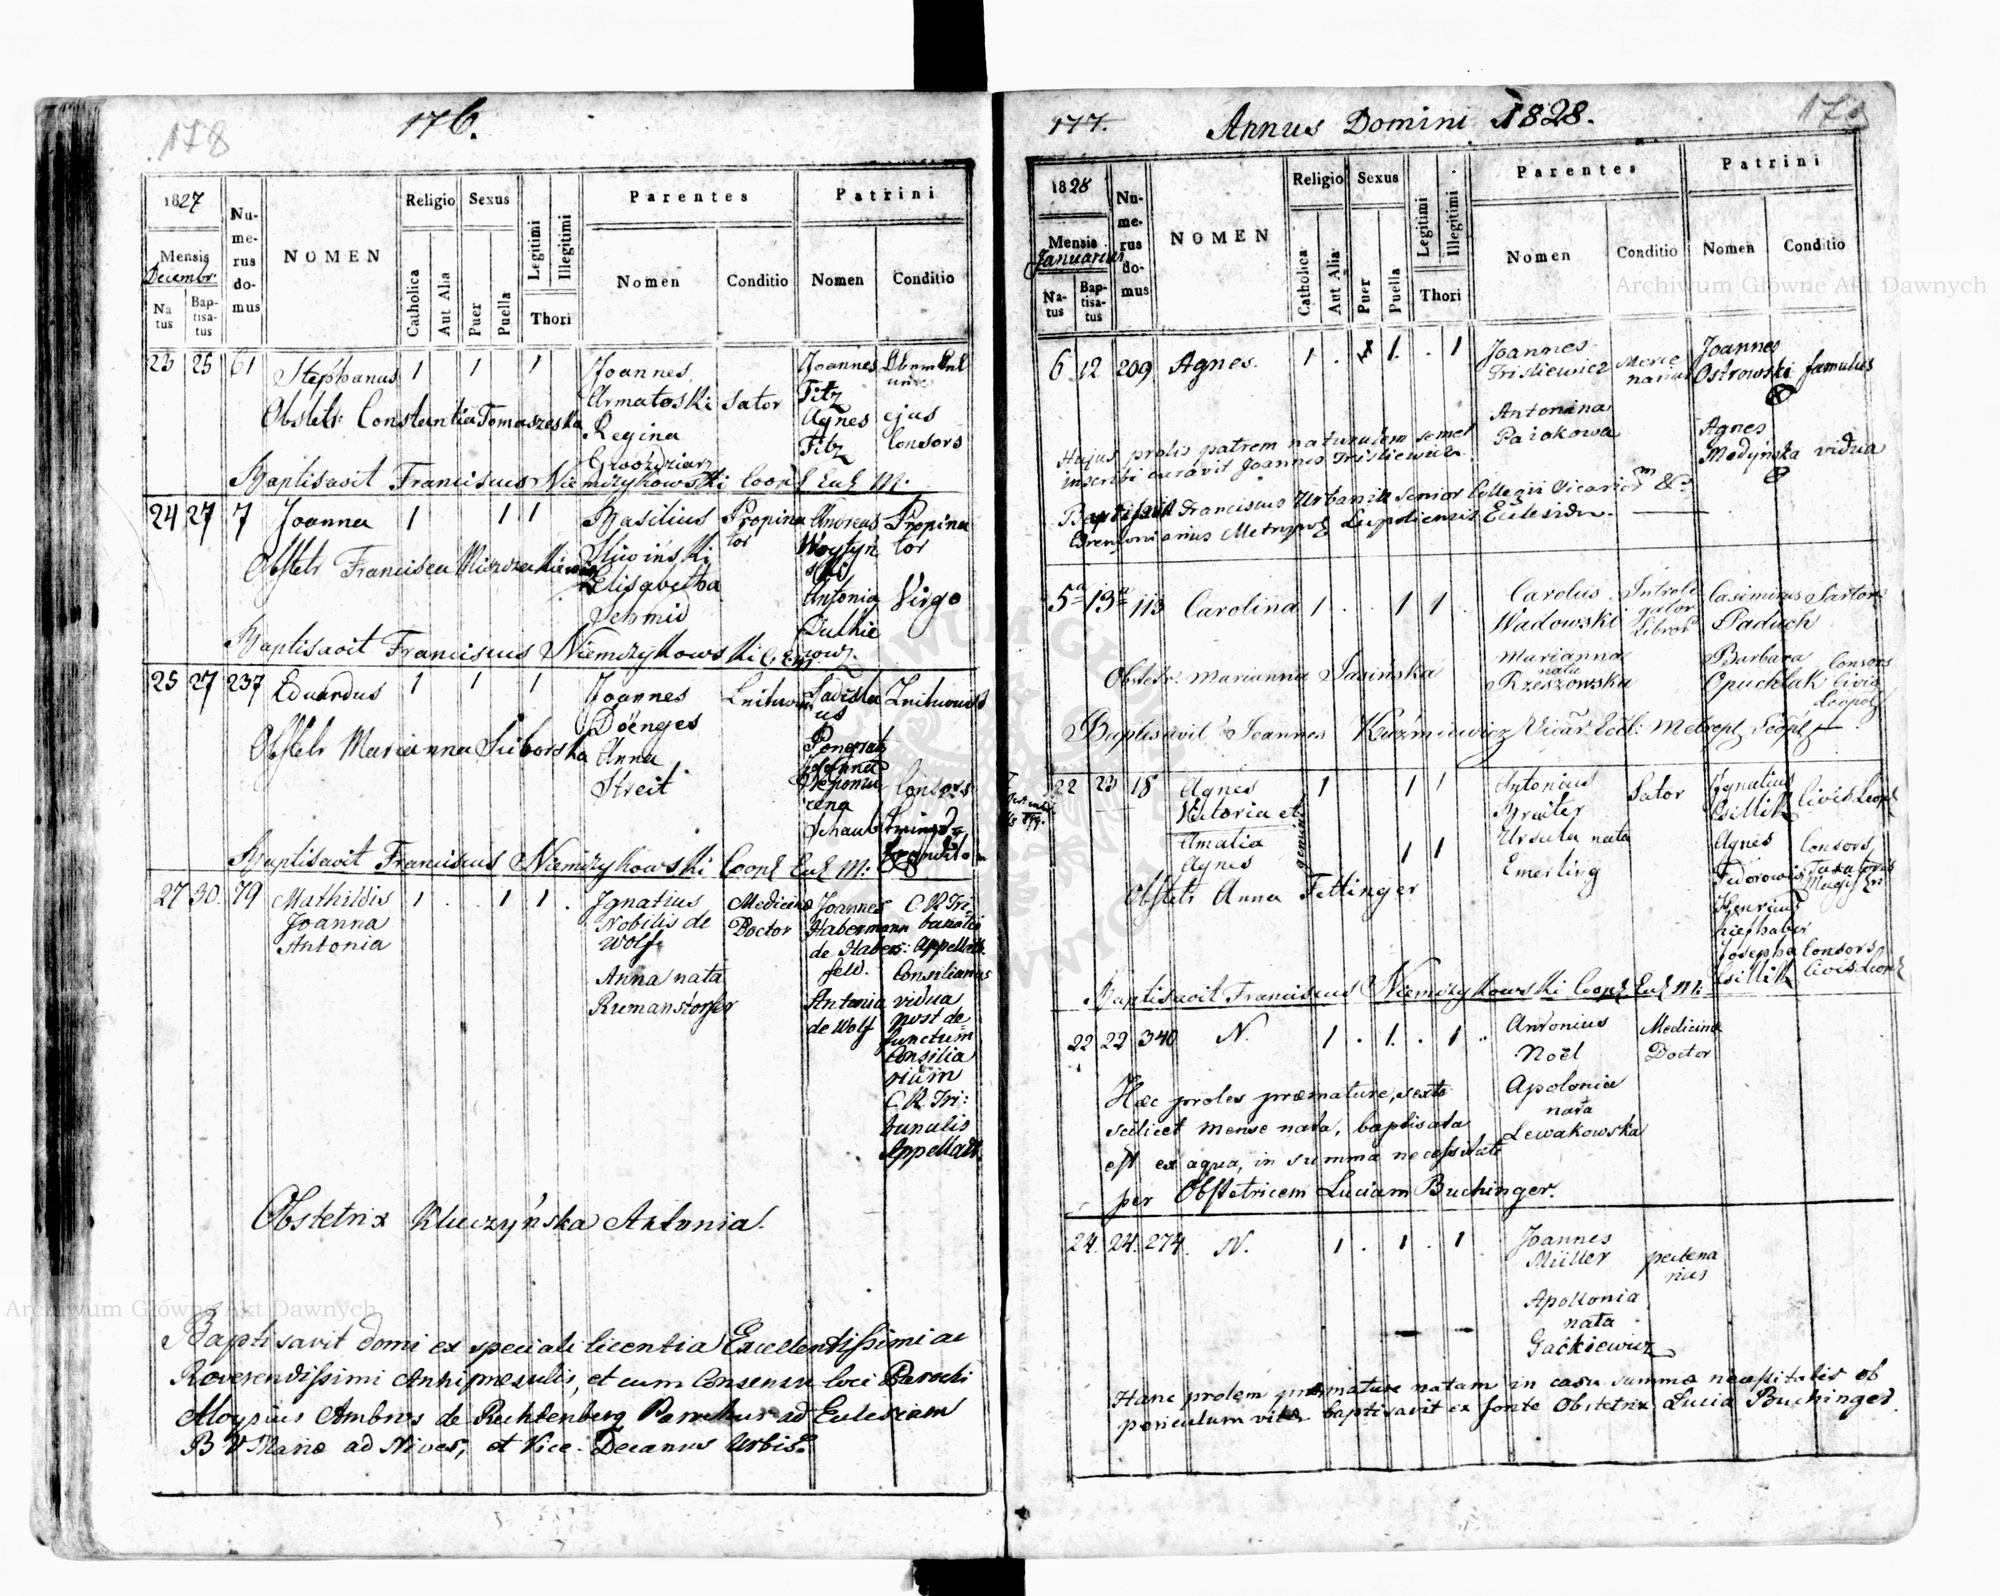 178
176.
1827
Mensis
Decembr.
Natus
Baptisatus
Numerus domus
NOMEN
Religio
Catholica
Aut Alia
Sexus
Puer
Puella
Legitimi
Illegitimi
Thori
Parentes
Nomen
Conditio
Patrini
Nomen
Conditio
23 25 61 Stephanus 1 1 1 Joannes Joannes
Armatoski Sator Titz
Obstetr Constantia Tomaszeska Regina Agnes ejus
Gwoździarz Titz Consors
Baptisavit Franciscus Niemczykowski Coopl Eccl M.
24 27 7 Joanna 1 1 1 Basilius Propinator Andreas Propinator
Obstetr Francisca Woytyński
Elisavetha Antonia Virgo
Schmid
Baptisavit Franciscus Niemczykowski
25 27 237 Eduardus 1 1 1 Joannes
Döenges
Obstetr Marianna Anna
Streit
Consors
Baptisavit Franciscus Niemczykowski Coopl Eccl M:
27 30. 79 Mathildis 1 . . 1 1 . Ignatius Medicinæ Joannes C. R. Tri
Joanna Nobilis de Doctor Habermann bunalis
Antonia Wolf de Habers: Appellatt.
feld. Consiliarius
Anna nata Antonia vidua
Rumanstorfer de Wolf post de=
functum
Consilia
rium
C. R. Tri:
bunalis
Appellatt.
Obstetrix Kluczyńska Antonia.
Baptisavit domi ex speciali licentia Excellentissimi ac
Reverendissimi Archipresulis, et cum Consensu loci Parochi
Aloysius Ambros de Rechtenberg Parochus ad Ecclesiam
B V Mariæ ad Nives, et Vice-Decanus Urbis.
177.
Annus Domini 1828.
1828
Mensis
Januarius
Natus
Baptisatus
Numerus domus
NOMEN
Religio
Catholica
Aut Alia
Sexus
Puer
Puella
Legitimi
Illegitimi
Thori
Parentes
Nomen
Conditio
Patrini
Nomen
Conditio
6 12 209 Agnes. 1 . 1. . 1 Joannes Mercenarius Joannes
Trisliewicz Ostrowski famulus
Antonina
Pazokowa Agnes
Medyńska vidua
Hujus prolis patrem naturalem semet
inscribi curavit Joannes Trisliewicz
Baptisavit Franciscus Urbanik Senior Collegii Vicarior
Metropol Leopoliensis Ecclesiæ.
5a 13a 113 Carolina 1 . . 1 1 . Carolus Introligator Casimirus Sartor
Wadowski Libror Paduch
Marianna Barbara Consors
Obstetr: Marianna Jasińska nata Opuchlak civis
Rzeszowska Leopol
Baptisavit Joannes Kuźmiewicz Vicar Eccl: Metropl Leopl
22 23 18 Agnes 1 1 1 Antonius Sator Ignatius civis Leopl
Victoria et Braiter
Amalia gemini 1 1 Ursula nata Agnes Consors
Agnes Emerling Fedorowicz
Obstetr Anna Fettinger
Josepha Consors
civis Leopl
Baptisavit Franciscus Niemczykowski Coopl Eccl M:
22 22 340 N. 1 . 1. . 1 . Antonius Medicinæ
Noël Doctor
Apolonia
nata
Lewakowska
Hæc proles præmature, sexto
scilicet mense nata, baptisata
est ex aqua, in summa necessitate
per Obstetricem Luciam Buchinger.
24. 24. 274. N. 1 . 1 . 1 Joannes
Müller pectenarius
Apollonia
nata
Gackiewicz
Hanc prolem præmature natam in casu summæ necessitatis ob
periculum vitæ baptisavit ex fonte Obstetrix Lucia Buchinger.
Archiwum Główne Akt Dawnych
Archiwum Główne Akt Dawnych